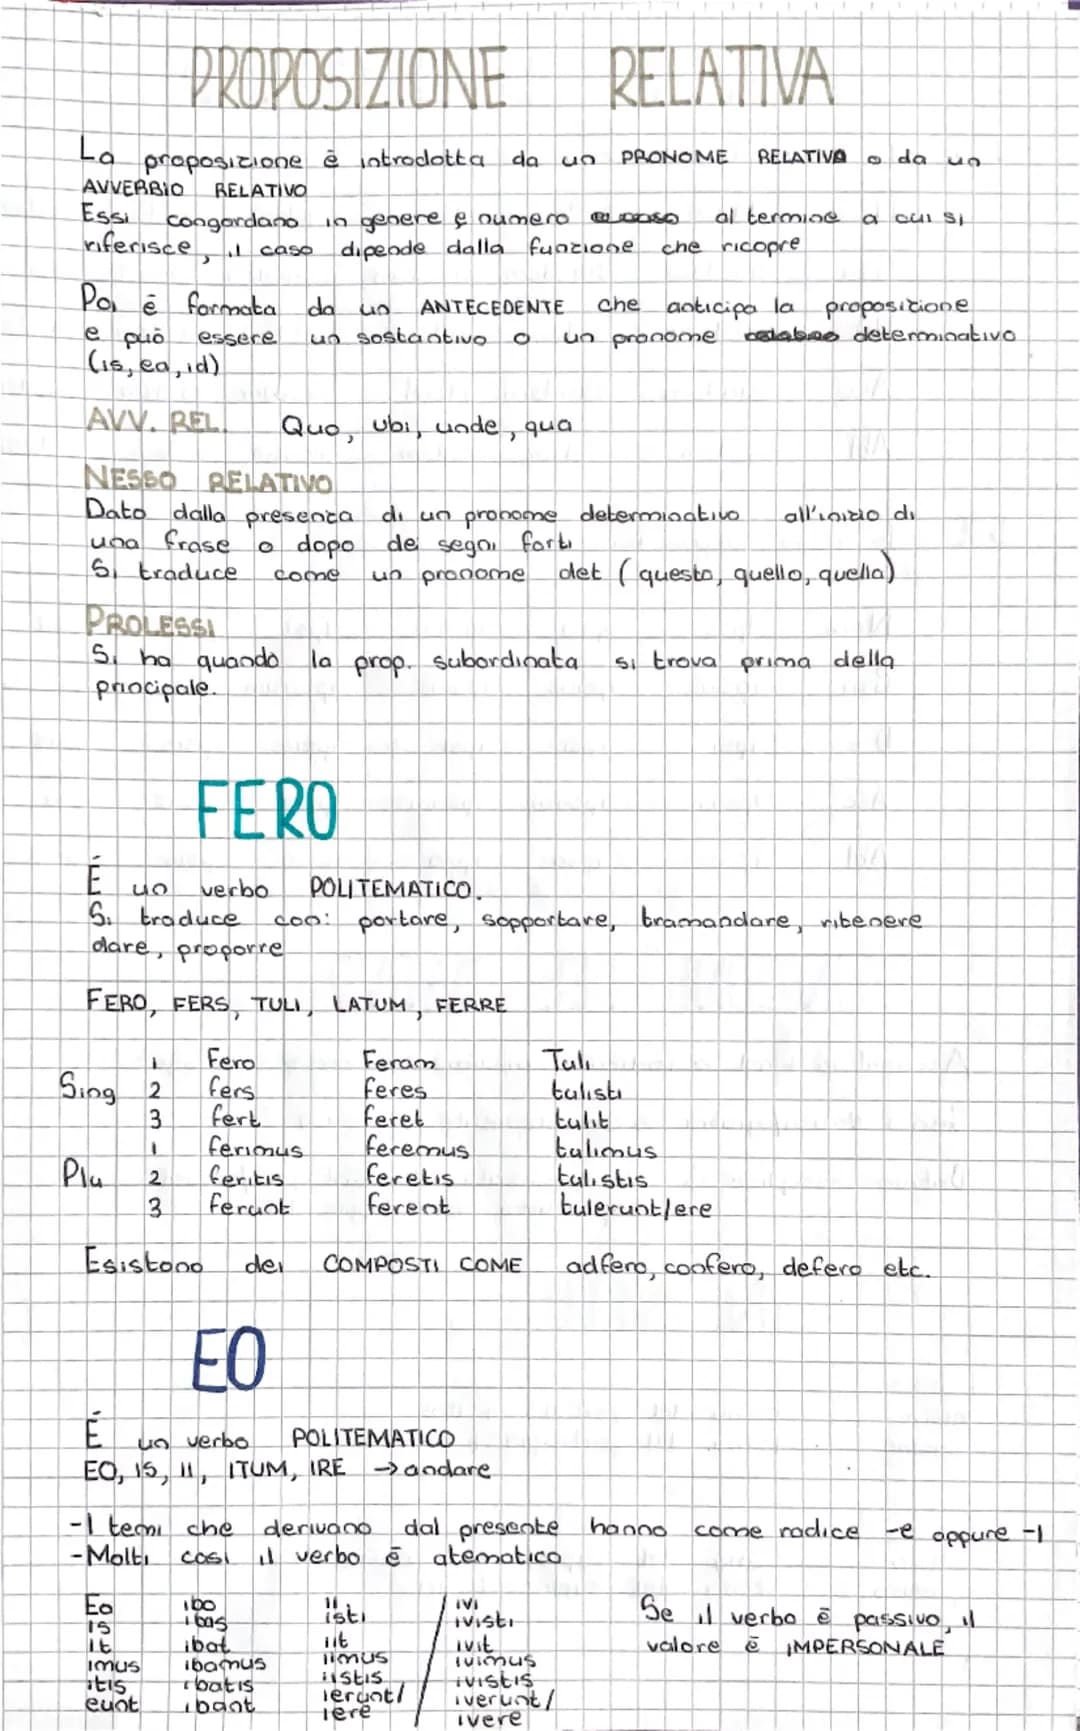 PROPOSIZIONE RELATIVA
La proposizione è introdotta da un PRONOME RELATIVO o da un
AVVERBIO RELATIVO
Essi congordano in genere e numero al termine a cui si
riferisce, il caso dipende dalla funzione che ricopre
Poi è formata da un ANTECEDENTE che anticipa la proposizione
e può essere un sostantivo o un pronome determinativo
(is, ea, id)
AVV. REL. Quo, ubi, unde, qua
NESSO RELATIVO
Dato dalla presenza di un pronome determinativo all'inizio di
una frase o dopo dei segni forti
Si traduce come un pronome det (questo, quello, quella)
PROLESSI
Si ha quando la prop. subordinata si trova prima della
principale.
FERO
É un verbo POLITEMATICO.
Si traduce con: portare, sopportare, tramandare, ritenere
dare, proporre
FERO, FERS, TULI, LATUM, FERRE
1 Fero Feram Tuli
Sing 2 fers feres tulisti
3 fert feret tulit
1 ferimus feremus tulimus
Plu 2 feritis feretis tulistis
3 ferunt ferent tulerunt/ere
Esistono dei COMPOSTI COME adfero, confero, defero etc.
EO
É un verbo POLITEMATICO
EO, IS, II, ITUM, IRE → andare
-I temi che derivano dal presente hanno come radice -e oppure -I
-Molti così il verbo è atematico
Eo ibo ii / ivi
is ibas isti ivisti
it ibat iit ivit
imus ibamus iimus ivimus
itis ibatis iistis ivistis
eunt ibant ierunt/ iverunt/
iere ivere
Se il verbo è passivo, il
valore è IMPERSONALE